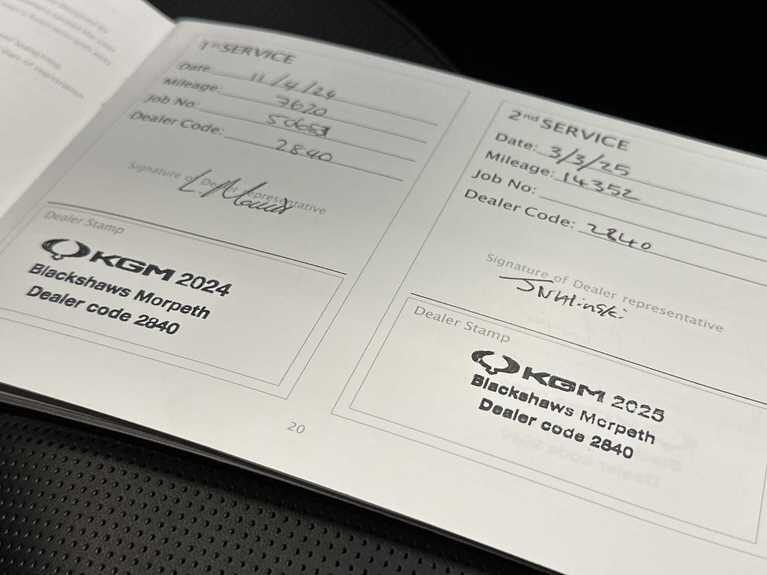 1st SERVICE
Date: 11/4/24
Mileage: 7620
Job No:
Dealer Code: 2840
Signature of Dealer representative
Dealer Stamp
KGM 2024
Blackshaws Morpeth
Dealer code 2840
20
2nd SERVICE
Date: 3/3/25
Mileage: 14352
Job No:
Dealer Code: 2840
Signature of Dealer representative
Dealer Stamp
KGM 2025
Blackshaws Morpeth
Dealer code 2840